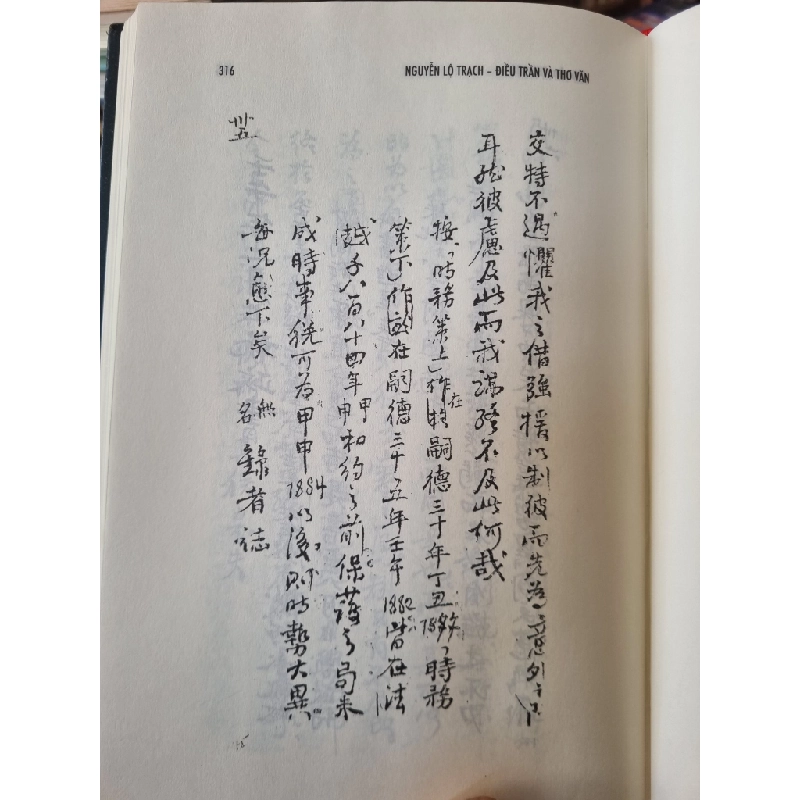 316
NGUYỄN LỘ TRẠCH – ĐIỀU TRẦN VÀ THƠ VĂN
交特不過懼我之借強援以制彼而先為意外之
耳能彼慮及此而我謀終不及此何哉
按「时務策上」作在嗣德三十年丁丑「時務
策下」作於在嗣德三十五年壬午1882皆在法
越千八百八十四年甲申和約之前保護之局未
成時事猶可為甲申1884以後則时勢大異
無名錄者誌
卅五